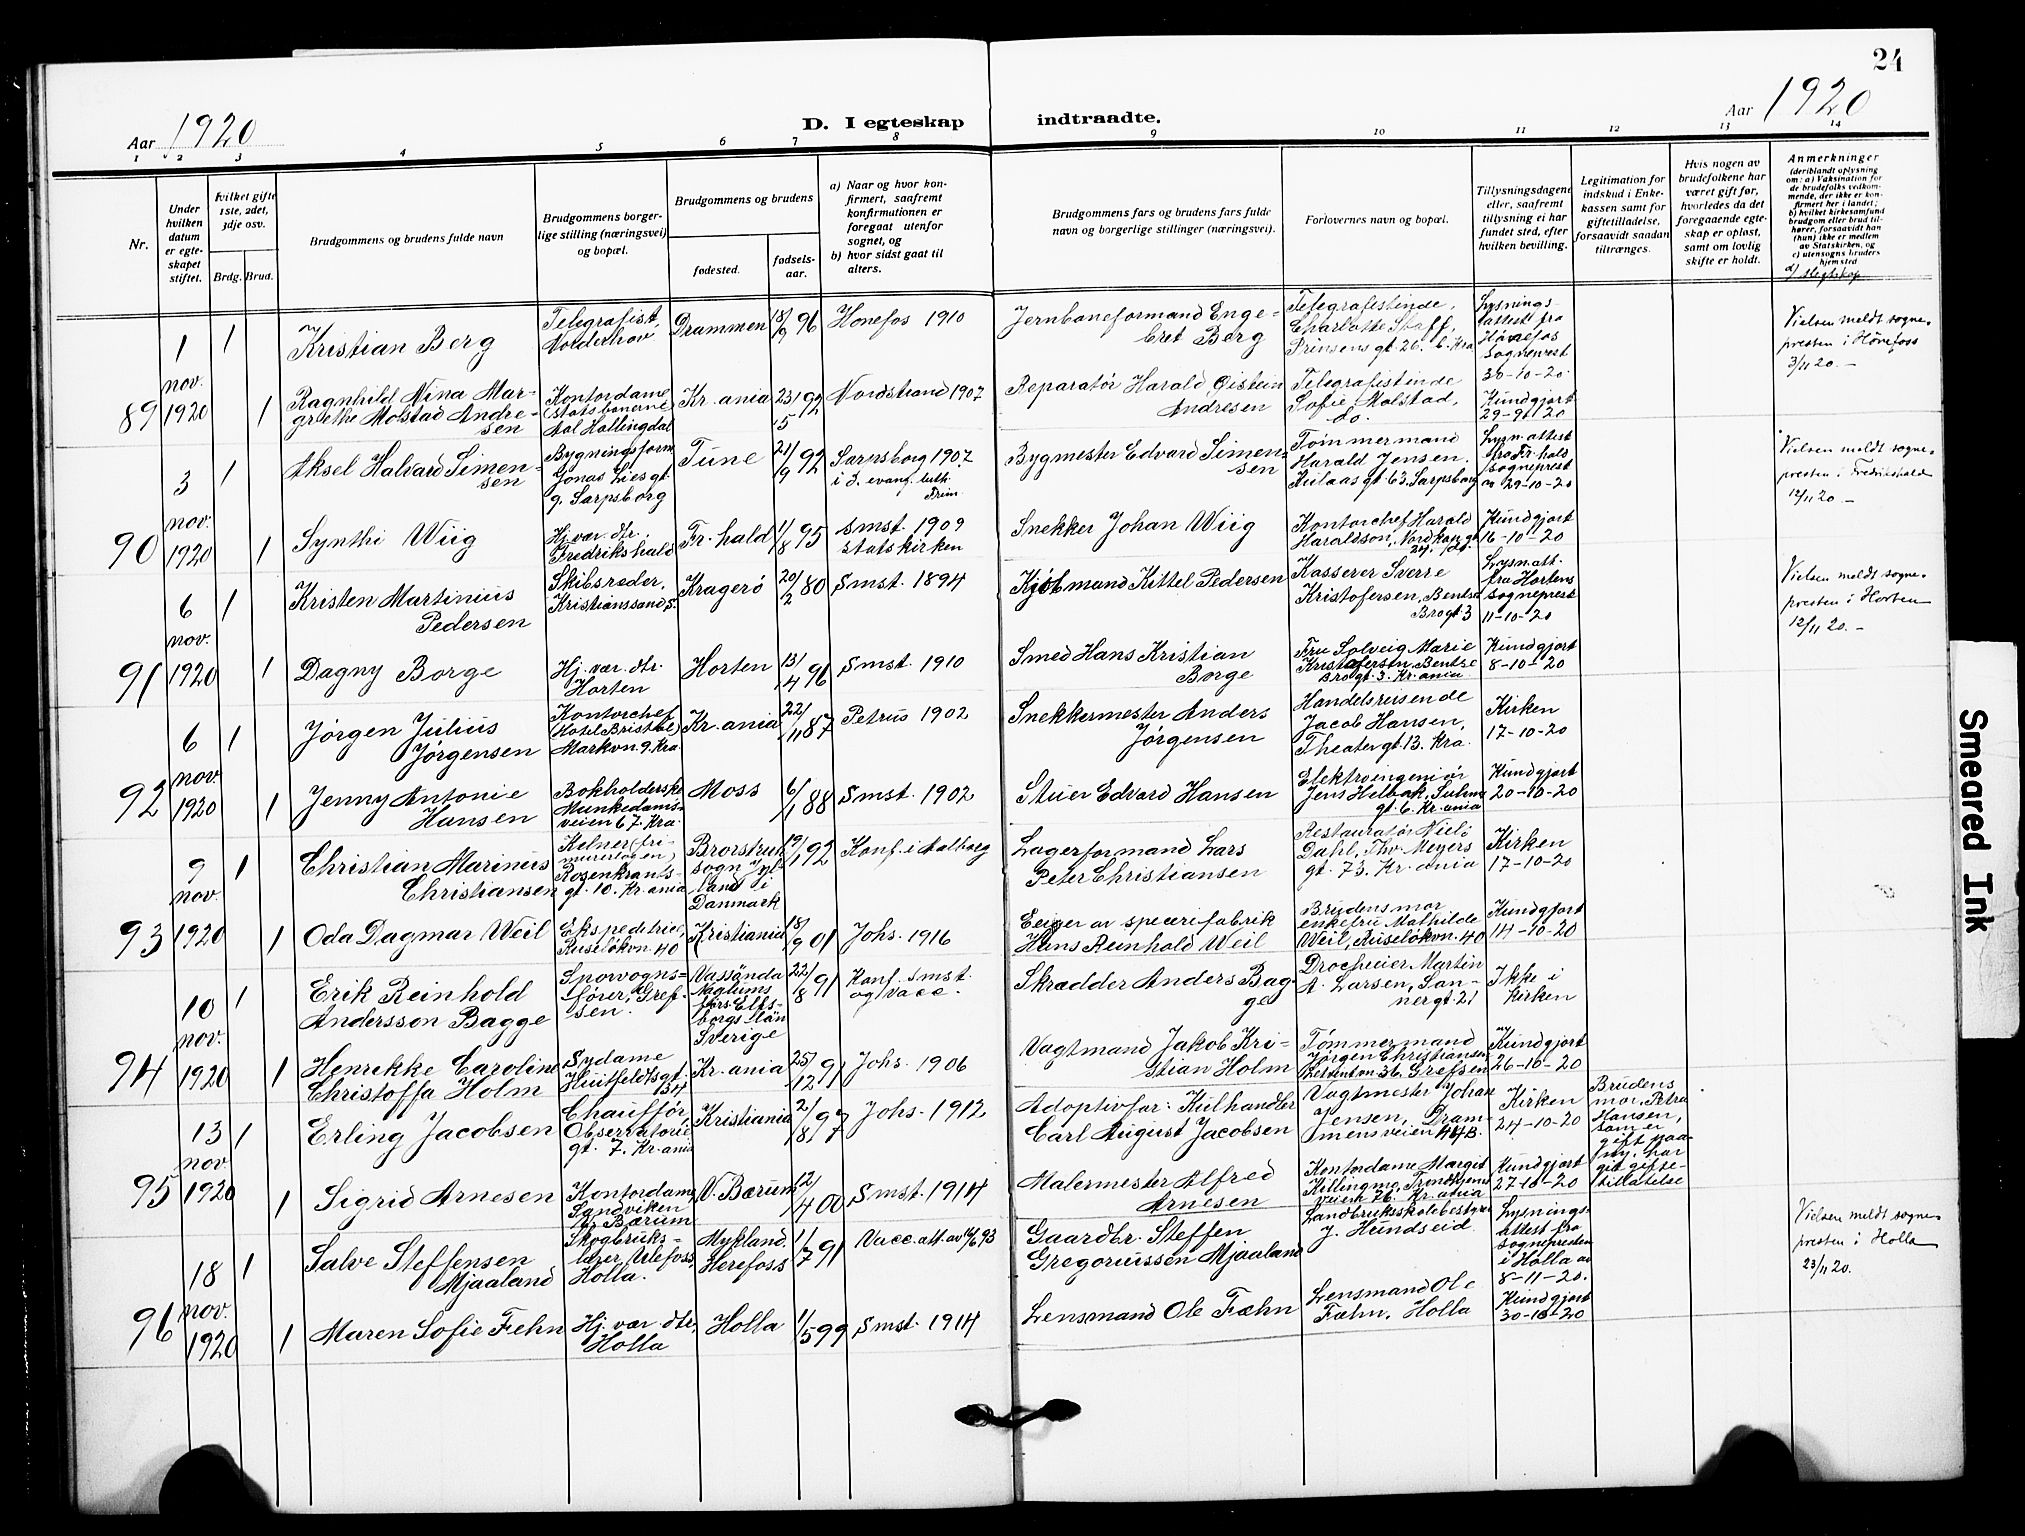 24
Aar 1920
D. I egteskap indtraadte.
Aar 1920
1 2 3 4 5 6 7 8 9 10 11 12 13 14
Nr.
Under hvilken datum er egteskapet stiftet.
hvilket gifte 1ste, 2det, 3dje osv.
Brdg. Brud.
Brudgommens og brudens fulde navn
Brudgommens borgerlige stilling (næringsvei) og bopæl.
Brudgommens og brudens
fødested.
fødselsaar.
a) Naar og hvor konfirmert, saafremt konfirmationen er foregaat utenfor sognet, og
b) hvor sidst gaat til alters.
Brudgommens fars og brudens fars fulde navn og borgerlige stillinger (næringsvei).
Forlovernes navn og bopæl.
Tillysningsdagene eller, saafremt tillysning ei har fundet sted, efter hvilken bevilling.
Legitimation for indskud i Enkekassen samt for giftetilladelse, forsaavidt saadan tiltrænges.
Hvis nogen av brudefolkene har været gift før, hvorledes da det foregaaende egteskap er opløst, samt om lovlig skifte er holdt.
Anmerkninger (deriblandt oplysning om: a) Vaksination for de brudefolks vedkommende, der ikke er konfirmert her i landet; b) hvilket kirkesamfund brudgom eller brud tilhører, forsaavidt han (hun) ikke er medlem av Statskirken, og c) utensogns bruders hjemsted
d) slegtskap
89
1 nov. 1920
1
Kristian Berg
Telegrafist, Norderhov
Drammen
18/9 96
Hønefos 1910
Jernbaneformand Engebret Berg
Telegrafistinde, Charlotte Staff, Prinsens gt. 26. b. Kra
Lysningsattest fra Hønefos sogneprest 30-10-20
Vielsen meldt sognepresten i Hönefoss 3/11 20.-
1
Ragnhild Nina Margrethe Molstad Andresen
Kontordame (statsbanerne) Aal Hallingdal
Kr.ania
23/5 92
Nordstrand 1907
Reparatør Harald Øistein Andresen
Telegrafistinde Sofie Molstad, do.
Kundgjort 29-9-20
90
3 nov. 1920
1
Aksel Halvard Simensen
Bygningsform Jonas Lies gt. 9, Sarpsborg
Tune
21/9 92
Sarpsborg 1907 i d. evang. luth. Frim.
Bygmester Edvard Simensen
Tømmermand Harald Jensen. Kiilaas gt. 63, Sarpsborg
Lysn. attest fra Fr.hald sogneprest av 29-10-20
Vielsen meldt sognepresten i Fredrikshald 12/11 20.-
1
Synthi Wiig
Hj. vær. dtr. Fredrikshald
Fr.hald
1/8 95
Smst. 1909 statskirken
Snekker Johan Wiig
Kontorchef Harald Haraldson, Nordkap gt. 24. do.
Kundgjort 16-10-20
91
6 nov. 1920
1
Kristen Martinius Pedersen
Skibsreder, Kristianssand S.
Kragerø
20/2 80
Smst. 1894
Kjøbmand Kittel Pedersen
Kasserer Sverre Kristofersen, Bentse Brogt. 3
Lysn. att. fra Hortens sogneprest 11-10-20
Vielsen meldt sognepresten i Horten 12/11 20.-
1
Dagny Borge
Hj. vær. dtr. Horten
Horten
13/4 96
Smst. 1910
Smed Hans Kristian Borge
Fru Solveig Marie Kristofersen, Bentse Brogt. 3. Kr.ania
Kundgjort 8-10-20
92
6 nov 1920
1
Jørgen Julius Jørgensen
Kontorchef (Hotel Bristol) Markvn. 9. Kra
Kr.ania
22/11 87
Petrus 1902
Snekkermester Anders Jørgensen
Handelsreisende Jacob Hansen, Theatergt. 13. Kra.
Kirken 17-10-20
1
Jenny Antonie Hansen
Bokholderske Munkedamsveien 67. Kra.
Moss
6/1 88
Smst. 1902
Stuer Edvard Hansen
Elektroingeniør Jens Helbak, gt. 6. Kr.ania
Kundgjort 20-10-20
93
9 nov. 1920
1
Christian Marinus Christiansen
Kelner (frimurerlogen) Rosenkrantsgt. 10. Kr.ania
sogn Jylland i Danmark
19/1 92
Konf. i Aalborg
Lagerformand Lars Peter Christiansen
Restauratør Niels Dahl, Thv. Meyers gt. 73. Kr.ania
Kirken 17-10-20
1
Oda Dagmar Weil
Ekspeditrice, Ruseløkvn. 40
Kristiania
18/9 01
Johs. 1916
Eeiger av specerifabrik Hans Reinhold Weil
Brudens mor enkefru Mathilde Weil, Ruseløkvn. 40
Kundgjort 14-10-20
94
10 nov. 1920
1
Erik Reinhold Andersson Bagge
Sporvognsfører, Grefsen.
Vassända Naglums förs. Elfsborgs län Sverige
22/8 91
Konf. Smst. og vacc.
Skrædder Anders Bagge
Drocheeier Martin A. Larsen, Sannergt. 21
Ikke i kirken
1
Henrikke Caroline Christoffa Holm
Sydame Huitfeldtsgt.
Kr.ania
25/12 91
Johs. 1906
Vagtmand Jakob Kristian Holm
Tømmermand Jørgen Christiansen 36. Grefsen
Kundgjort 26-10-20
95
13 nov. 1920
1
Erling Jacobsen
Chauffør, Observatoriegt. 7. Kr.ania
Kristiania
2/8 97
Johs. 1912
Adoptivfar: Kulhandler Carl August Jacobsen
Vagtmester Johan Jensen, Drammensveien 44B.
Kirken 24-10-20
Brudens mor, Petra Hansen, som er gift paany, har git giftetillatelse
1
Sigrid Arnesen
Kontordame Sandviken Bærum
V. Bærum
12/4 00
Smst. 1914
Malermester Alfred Arnesen
Kontordame Margit Killingmo, Trondhjemsveien 76. Kr.ania
Kundgjort 27-10-20
96
18 nov. 1920
1
Salve Steffensen Mjaaland
Skogbrukslærer, Ulefoss, Holla.
Mykland, Herefoss
1/7 91
Vacc. att. av 16/6 93
Gaardbr. Steffen Gregoriussen Mjaaland
Landbruksskolebestyrer J. Hundseid
Lysningsattest fra sognepresten i Holla av 8-11-20.
Vielsen meldt sognepresten i Holla 23/11 20.
1
Maren Sofie Fehn
Hj. vær. dtr, Holla
Holla
1/5 99
Smst. 1914
Lensmand Ole Fæhn
Lensmand Ole Fæhn, Holla
Kundgjort 30-10-20
Smeared Ink